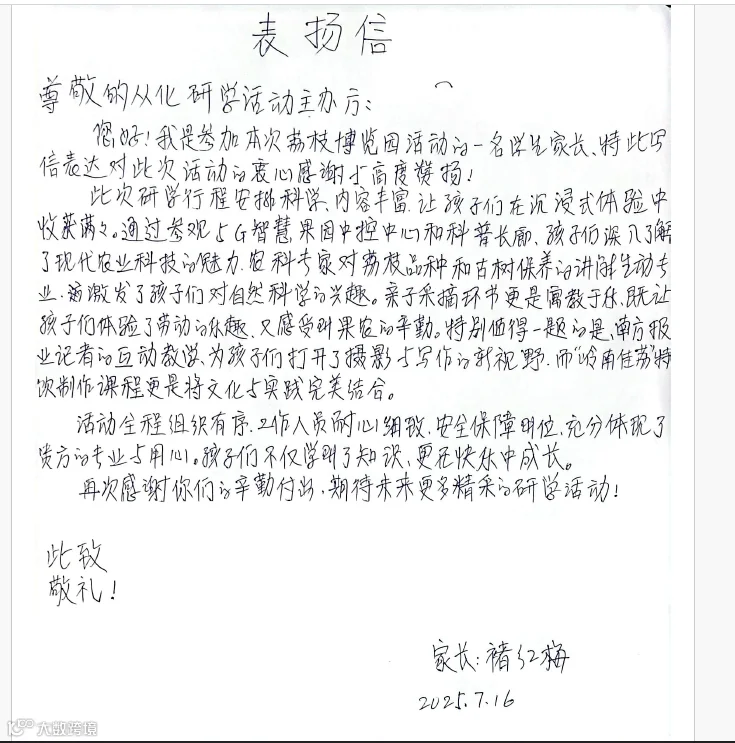 表扬信
尊敬的从化研学活动主办方:
您好!我是参加本次荔枝博览园活动的一名学生家长、特此写
信表达对此次活动的衷心感谢与高度赞扬!
此次研学行程安排科学、内容丰富,让孩子们在沉浸式体验中
收获满々。通过参观5G智慧果园中控中心和科普长廊、孩子们深入了解
了现代农业科技的魅力,农科专家对荔枝品种和古树保养的讲解生动专
业,激发了孩子们对自然科学的兴趣。亲子采摘环节更是寓教于乐,既让
孩子们体验了劳动的乐趣、又感受到果农的辛勤。特别值得一题的是,南方报
业记者的互动教学、为孩子们打开了摄影与写作的新视野,而"岭南佳荔"特
饮制作课程更是将文化与实践完美结合。
活动全程组织有序,工作人员耐心细致,安全保障到位,充分体现了
贵方的专业与用心。孩子们不仅学到了知识、更在快乐中成长。
再次感谢你们的辛勤付出,期待未来更多精采的研学活动!
此致
敬礼!
家长:褚红梅
2025.7.16
大数跨境